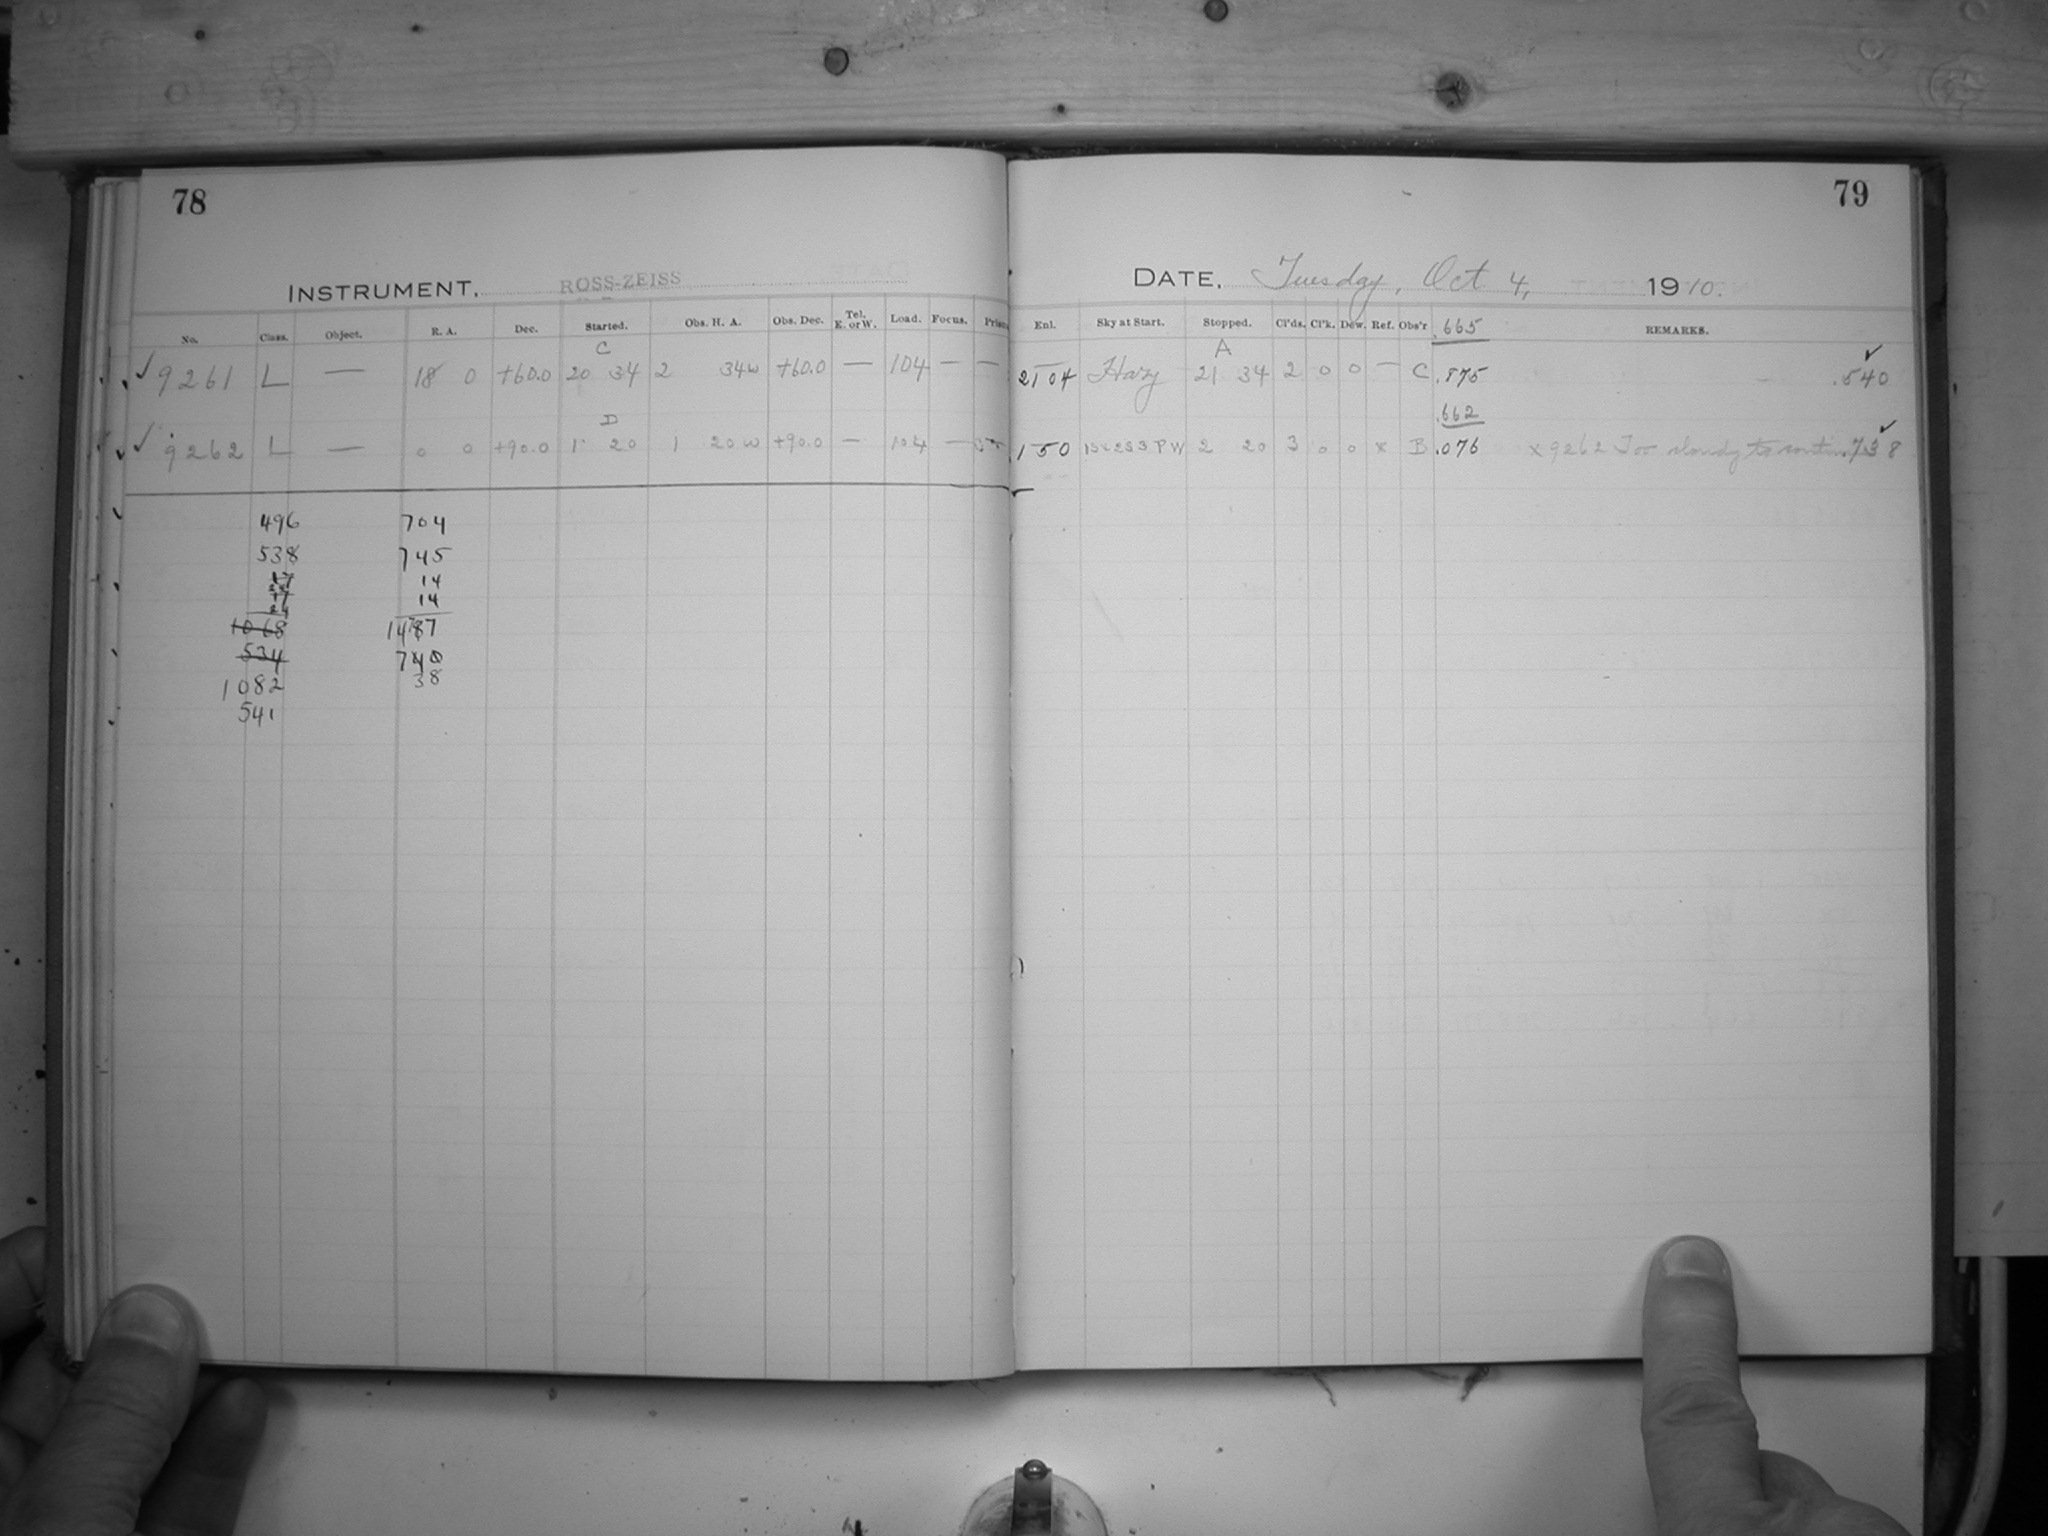 78
INSTRUMENT, ROSS-ZEISS
No. Class. Object. R. A. Dec. Started. Obs. H. A. Obs. Dec. Tel. E. or W. Load. Focus. Prism
C
✓ 9261 L — 18 0 +60.0 20 34 2 34w +60.0 — 104 — —
D
✓ 9262 L — 0 0 +90.0 1 20 1 20w +90.0 — 104 —
496 704
538 745
14
14
1068 1487
534 740
38
1082
541
79
DATE, Tuesday, Oct 4, 1910.
Enl. Sky at Start. Stopped. Cl'ds. Cl'k. Dew. Ref. Obs'r .665 REMARKS.
A ✓
21 04 Hazy 21 34 2 0 0 — C .875 .540
.662 ✓
1 50 2 20 3 0 0 x B .076 x 9262 Too cloudy to .738